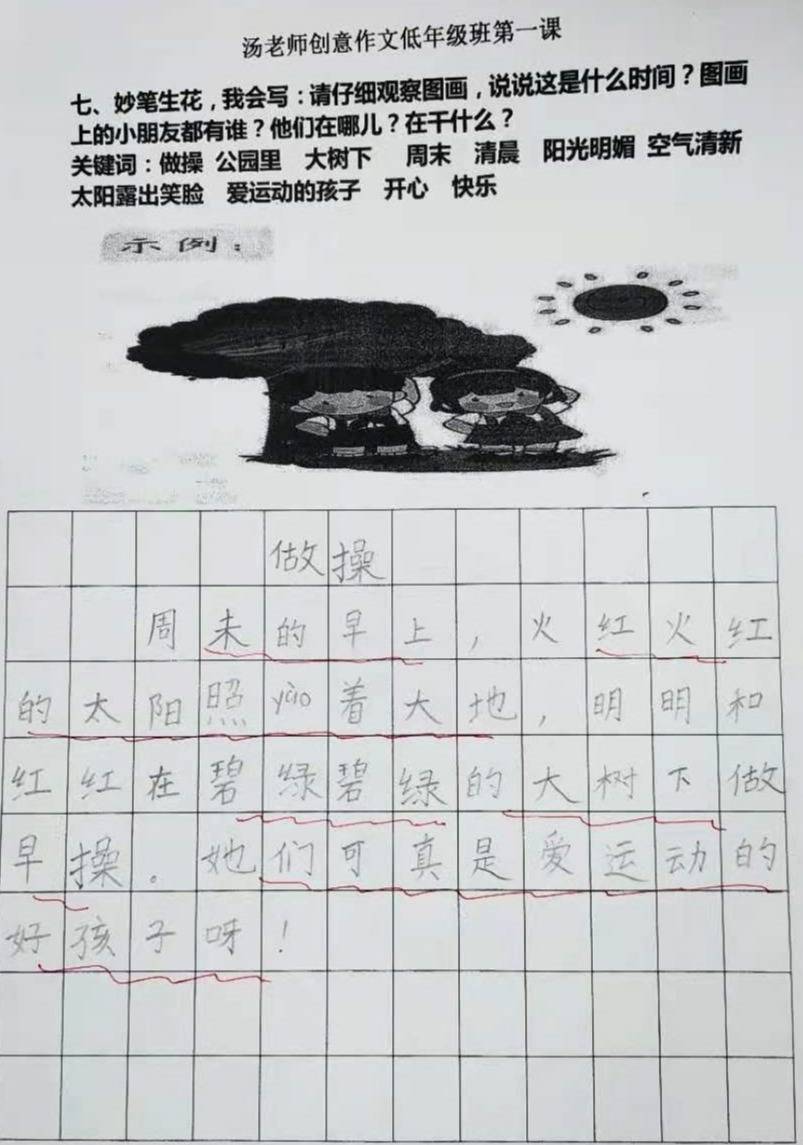 汤老师创意作文低年级班第一课
七、妙笔生花，我会写：请仔细观察图画，说说这是什么时间？图画
上的小朋友都有谁？他们在哪儿？在干什么？
关键词：做操 公园里 大树下 周末 清晨 阳光明媚 空气清新
太阳露出笑脸 爱运动的孩子 开心 快乐
示例：
做操
周未的早上，火红火红
的太阳照yào着大地，明明和
红红在碧绿碧绿的大树下做
早操。她们可真是爱运动的
好孩子呀！